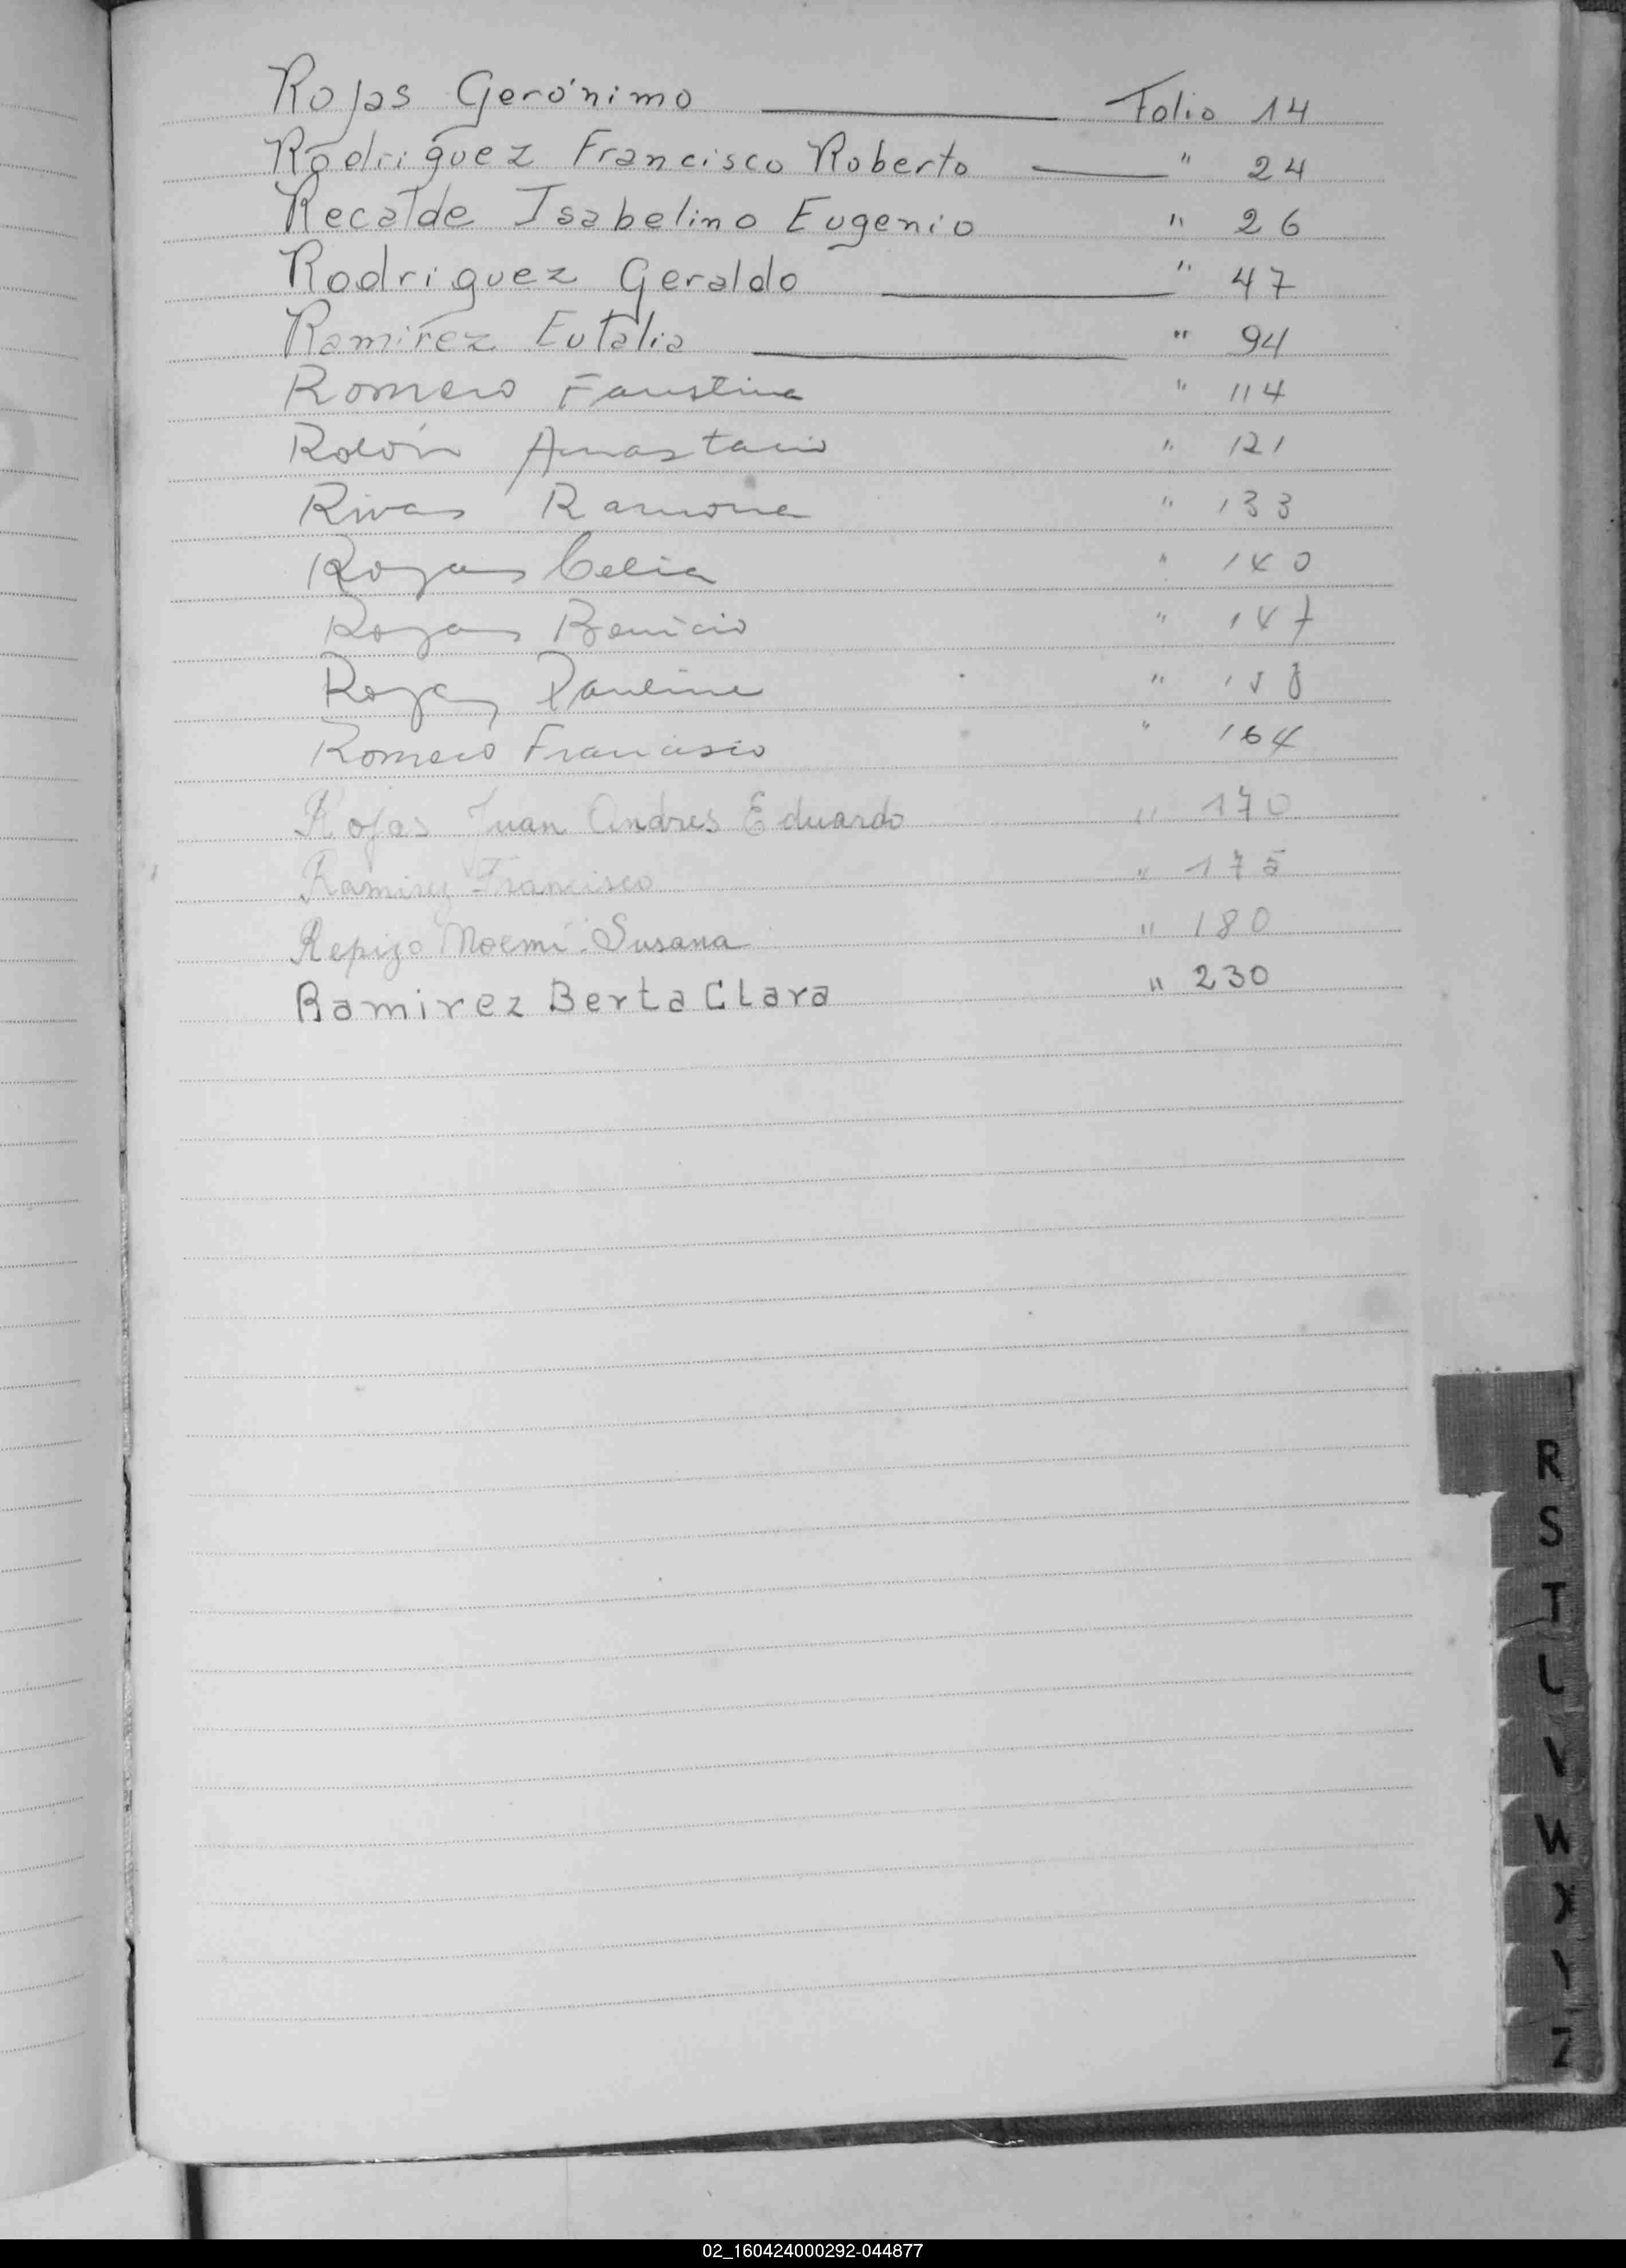 Rojas Gerónimo Folio 14
Rodriguez Francisco Roberto " 24
Recalde Isabelino Eugenio " 26
Rodriguez Geraldo " 47
Ramirez Eulalia " 94
Romero Faustina " 114
Rolón Anastacio " 121
Rivas Ramona " 133
Rojas Celia " 140
Rojas Benicio " 147
Rojas Paulina " 158
Romero Francisco " 164
Rojas Juan Andres Eduardo " 170
Ramirez Francisco " 175
Repizo Noemí Susana " 180
Ramirez Berta Clara " 230
R
S
T
V
W
X
Z
02_160424000292-044877